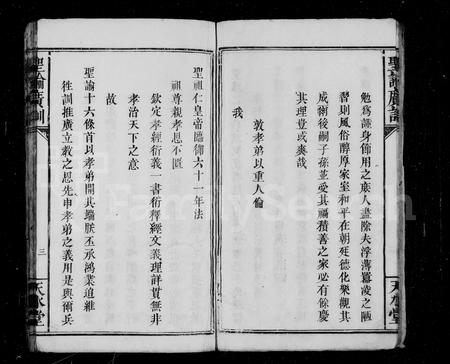 聖諭廣訓
勉爲謹身節用之庶人盡除夫浮薄囂凌之陋
習則風俗醇厚家室和平在朝廷德化樂觀其
成爾後嗣子孫並受其福積善之家必有餘慶
其理豈或爽哉
敦孝弟以重人倫
我
天水堂
聖祖仁皇帝臨御六十一年法
祖尊親孝思不匱
欽定孝經衍義一書衍釋經文義理詳貫無非
孝治天下之意
故
聖諭十六條首以孝弟開其端朕丕承鴻業追維
往訓推廣立教之思先申孝弟之義用是與爾兵
聖諭廣訓
三
天水堂
FamilySearch